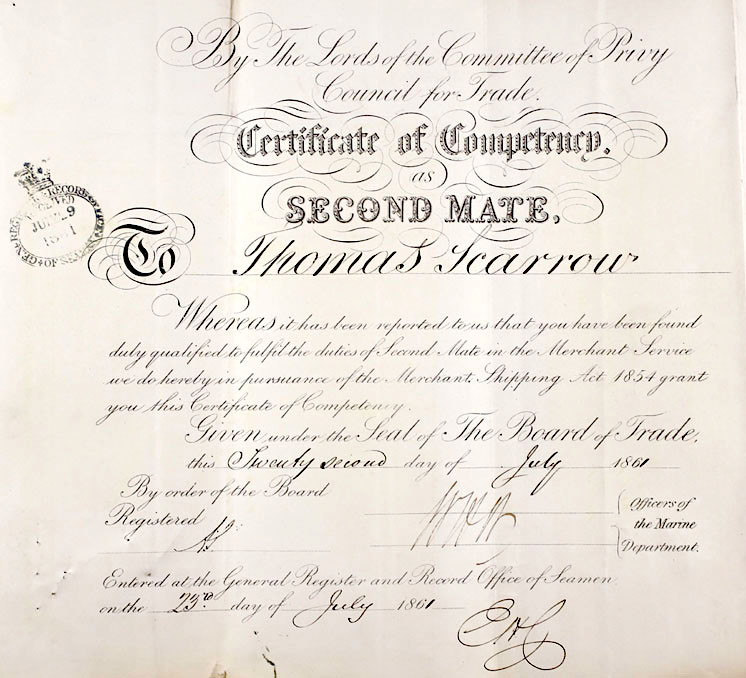 By The Lords of the Committee of Privy
Council for Trade.
Certificate of Competency,
as
SECOND MATE,
To Thomas Scarrow
Whereas it has been reported to us that you have been found
duly qualified to fulfil the duties of Second Mate in the Merchant Service
we do hereby in pursuance of the Merchant Shipping Act 1854 grant
you this Certificate of Competency.
Given under the Seal of The Board of Trade,
this Twenty second day of July 1861
By order of the Board
Registered
Officers of
the Marine
Department.
Entered at the General Register and Record Office of Seamen
on the 23rd day of July 1861